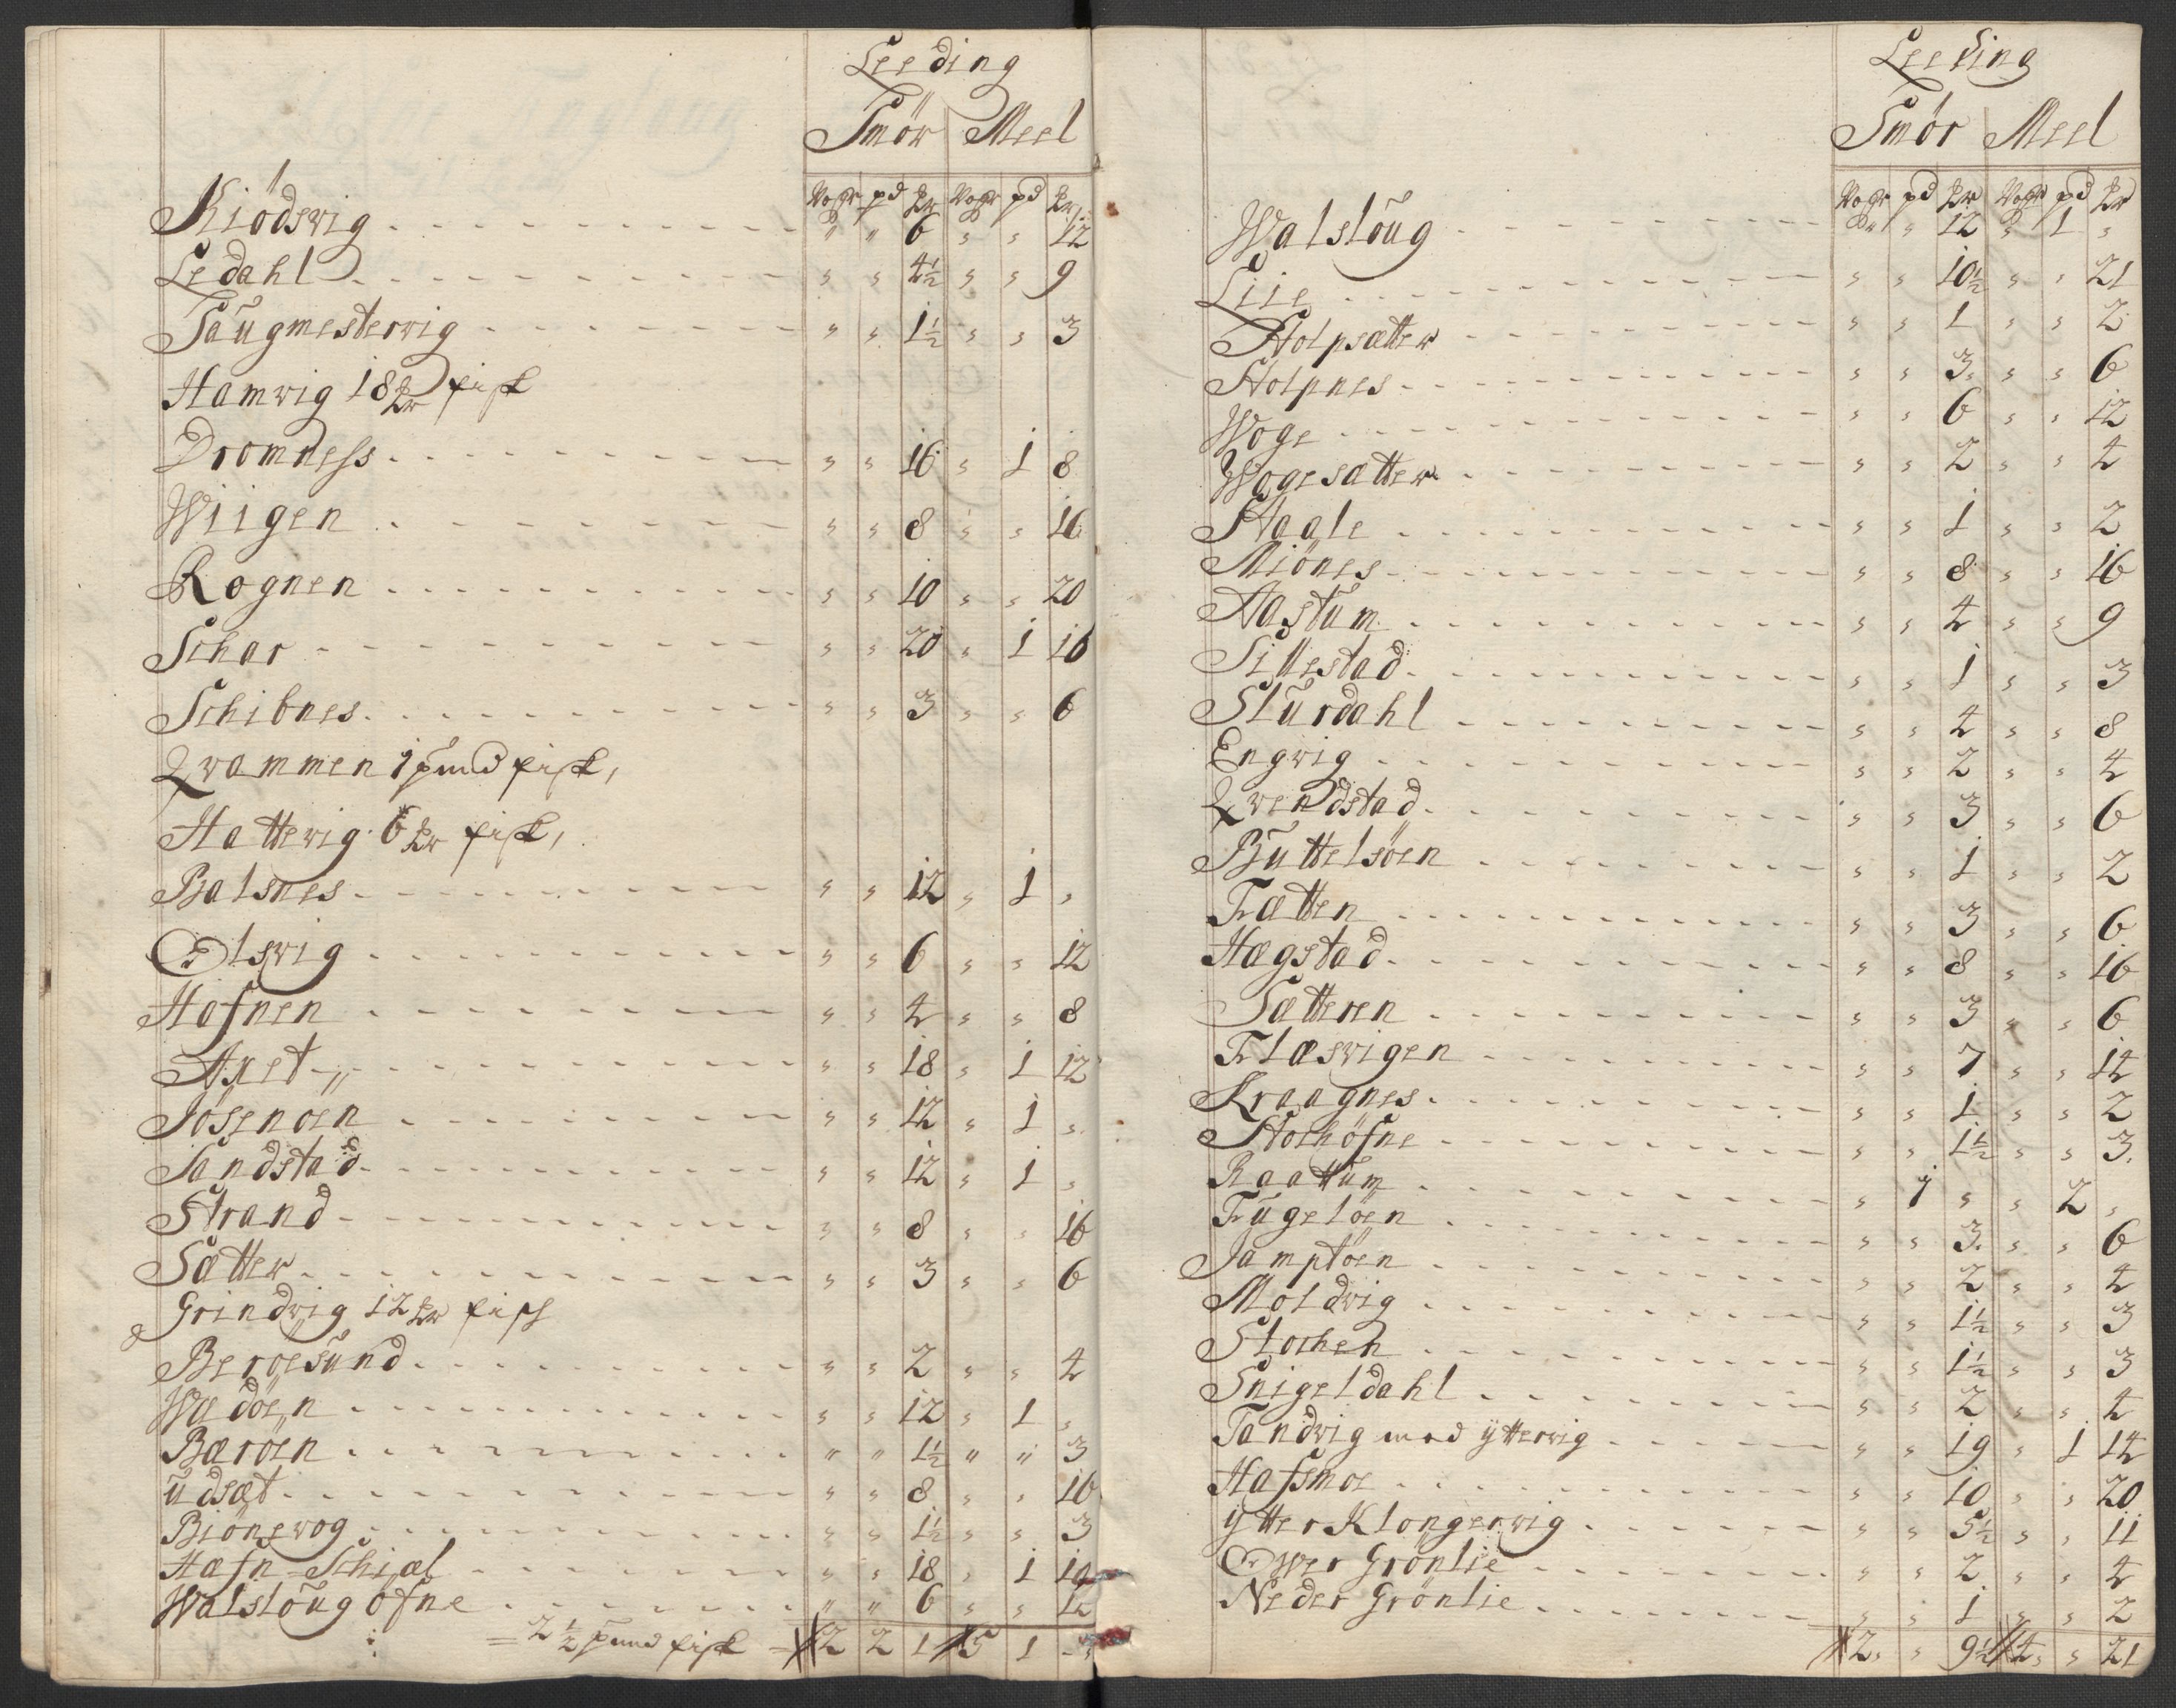 Leeding
Smör Meel
Vogr pd Lr Vogr pd Lr
Kiödsvig " " 6 " " 12
Ledahl " " 4½ " " 9
Taugmestervig " " 1½ " " 3
Hamvig 18 Lr fisk
Dromness " " 16 " 1 8
Wiigen " " 8 " " 16
Rognen " " 10 " " 20
Schar " " 20 " 1 16
Schibnes " " 3 " " 6
Qvammen 1 pund fisk,
Hattevig 6 Lr fisk,
Balsnes " " 12 " 1 "
Olsvig " " 6 " " 12
Hafnen " " 4 " " 8
Axet " " 18 " 1 12
Jösenöen " " 12 " 1 "
Sandstad " " 12 " 1 "
Strand " " 8 " " 16
Sætter " " 3 " " 6
Grindvig 12 Lr fisk
Beroesund " " 2 " " 4
Wædöen " " 12 " 1 "
Bæröen " " 1½ " " 3
Udsæt " " 8 " " 16
Biönevog " " 1½ " " 3
Hafn Schiæl " " 18 " 1 12
Walslöug öfne " " 6 " " 12
= 2½ pund fisk = 2 2 1 5 1 "
Leeding
Smör Meel
Vogr pd Lr Vogr pd Lr
Walslöug " " 12 " 1 "
Liie " " 10½ " " 21
Stolpsætter " " 1 " " 2
Stolpnes " " 3 " " 6
Woge " " 6 " " 12
Wogesætter " " 2 " " 4
Staale " " 1 " " 2
Miönes " " 8 " " 16
Aastum " " 4 " " 9
Sillestad " " 1 " " 3
Slurdahl " " 4 " " 8
Engvig " " 2 " " 4
Qvendstad " " 3 " " 6
Buttelsöen " " 1 " " 2
Fætten " " 3 " " 6
Hægstad " " 8 " " 16
Sætteren " " 3 " " 6
Flæsvigen " " 7 " " 14
Kraagnes " " 1 " " 2
Storhöfne " " 1½ " " 3
Raattum " 1 " " 2 "
Fugelöen " " 3 " " 6
Jamptöen " " 2 " " 4
Moldvig " " 1½ " " 3
Stochen " " 1½ " " 3
Snigeldahl " " 2 " " 4
Tandvig med yttervig " " 19 " 1 14
Hafsmoe " " 10 " " 20
ytter Klongervig " " 5½ " " 11
Ower Grönlie " " 2 " " 4
Neder Grönlie " " 1 " " 2
2 " 9½ 4 " 21